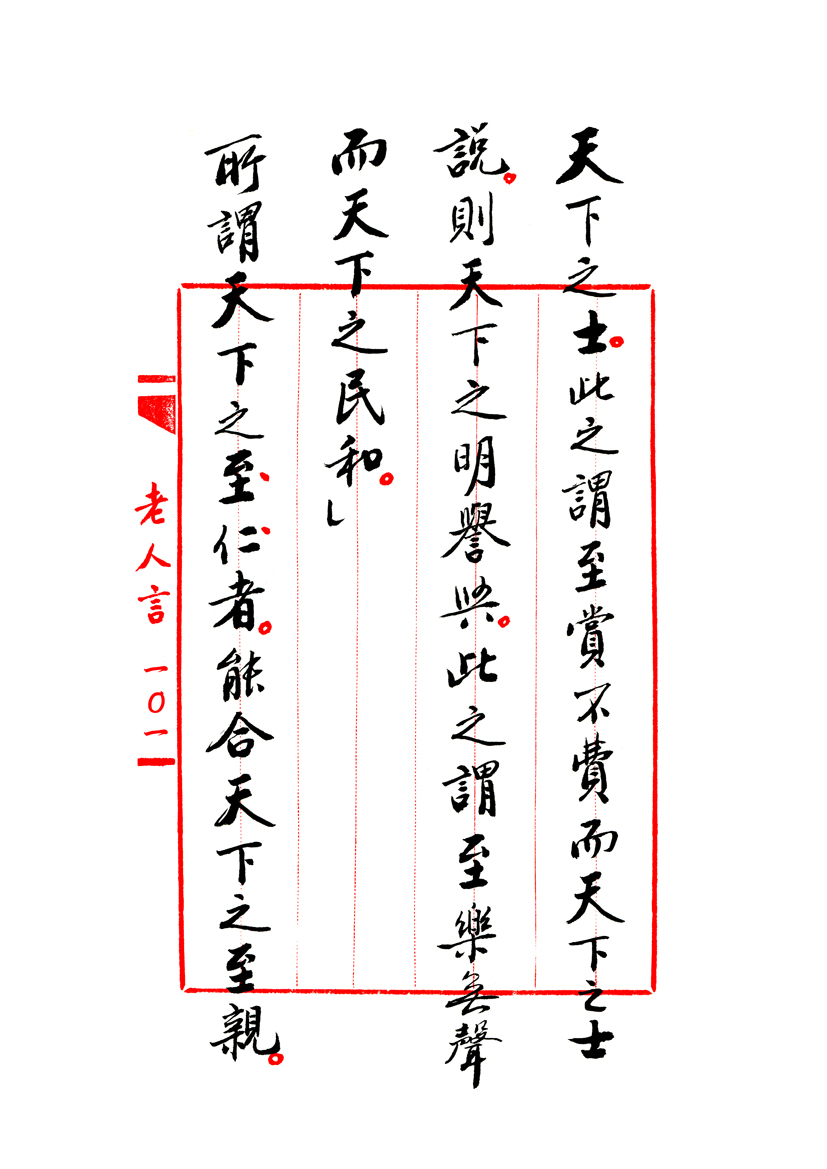 天下之士。此之謂至賞不費而天下之士
説。則天下之明譽興。此之謂至樂無聲
而天下之民和。」
所謂天下之至、仁、者。能合天下之至親。
老人言 一〇一